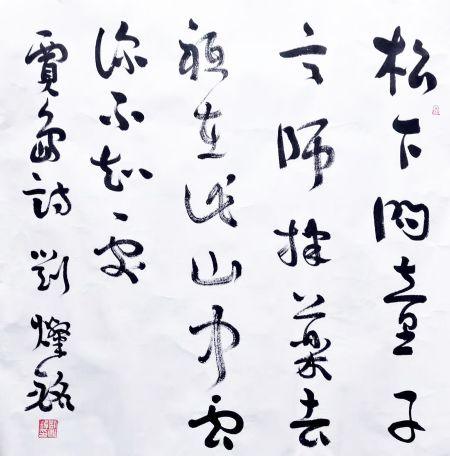 松下問童子
言師採藥去
祗在此山中雲
深不知處
賈島詩 劉燦銘